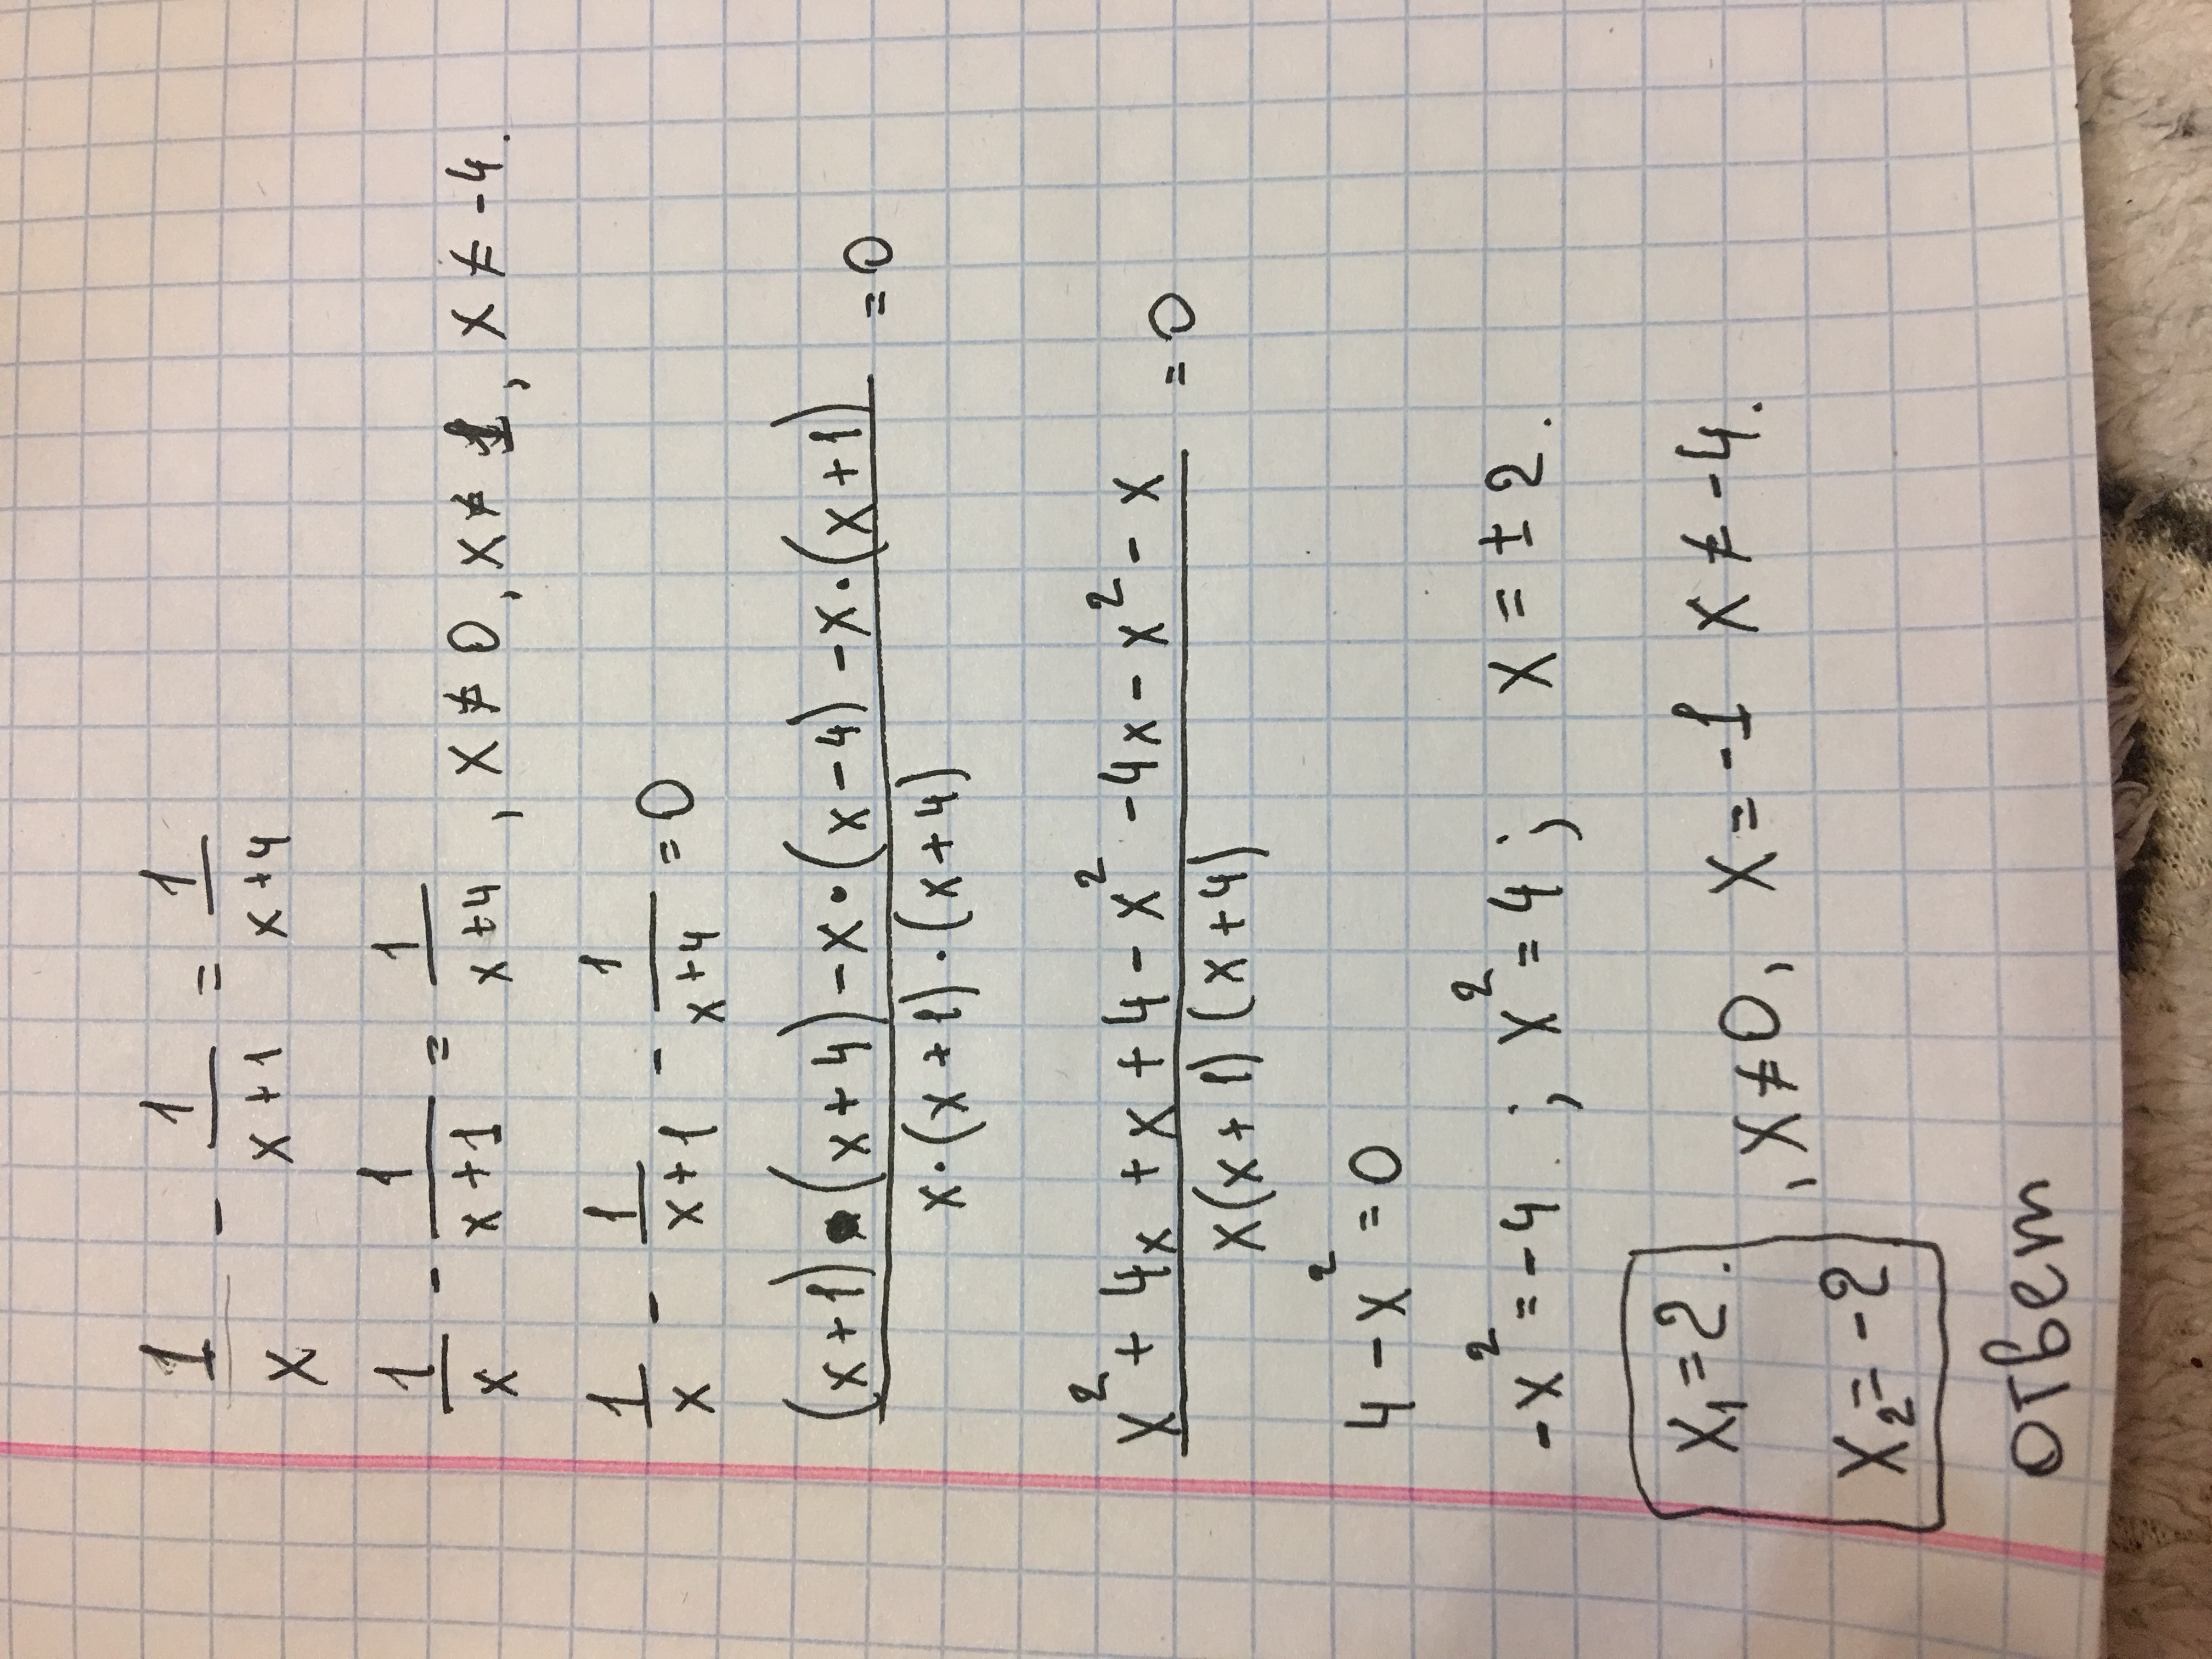 1/x - 1/(x+1) = 1/(x+4)
1/x - 1/(x+1) = 1/(x+4), x≠0, x≠ 1, x≠-4.
1/x - 1/(x+1) - 1/(x+4) = 0
((x+1)•(x+4)-x•(x-4)-x·(x+1))/(x·(x+1)·(x+4)) = 0
(x²+4x+x+4-x²-4x-x²-x)/(x(x+1)(x+4)) = 0
4-x²=0
-x²=-4; x²=4; x=±2.
x₁=2. , x≠0, x=-1 x≠-4.
x₂=-2
ответ